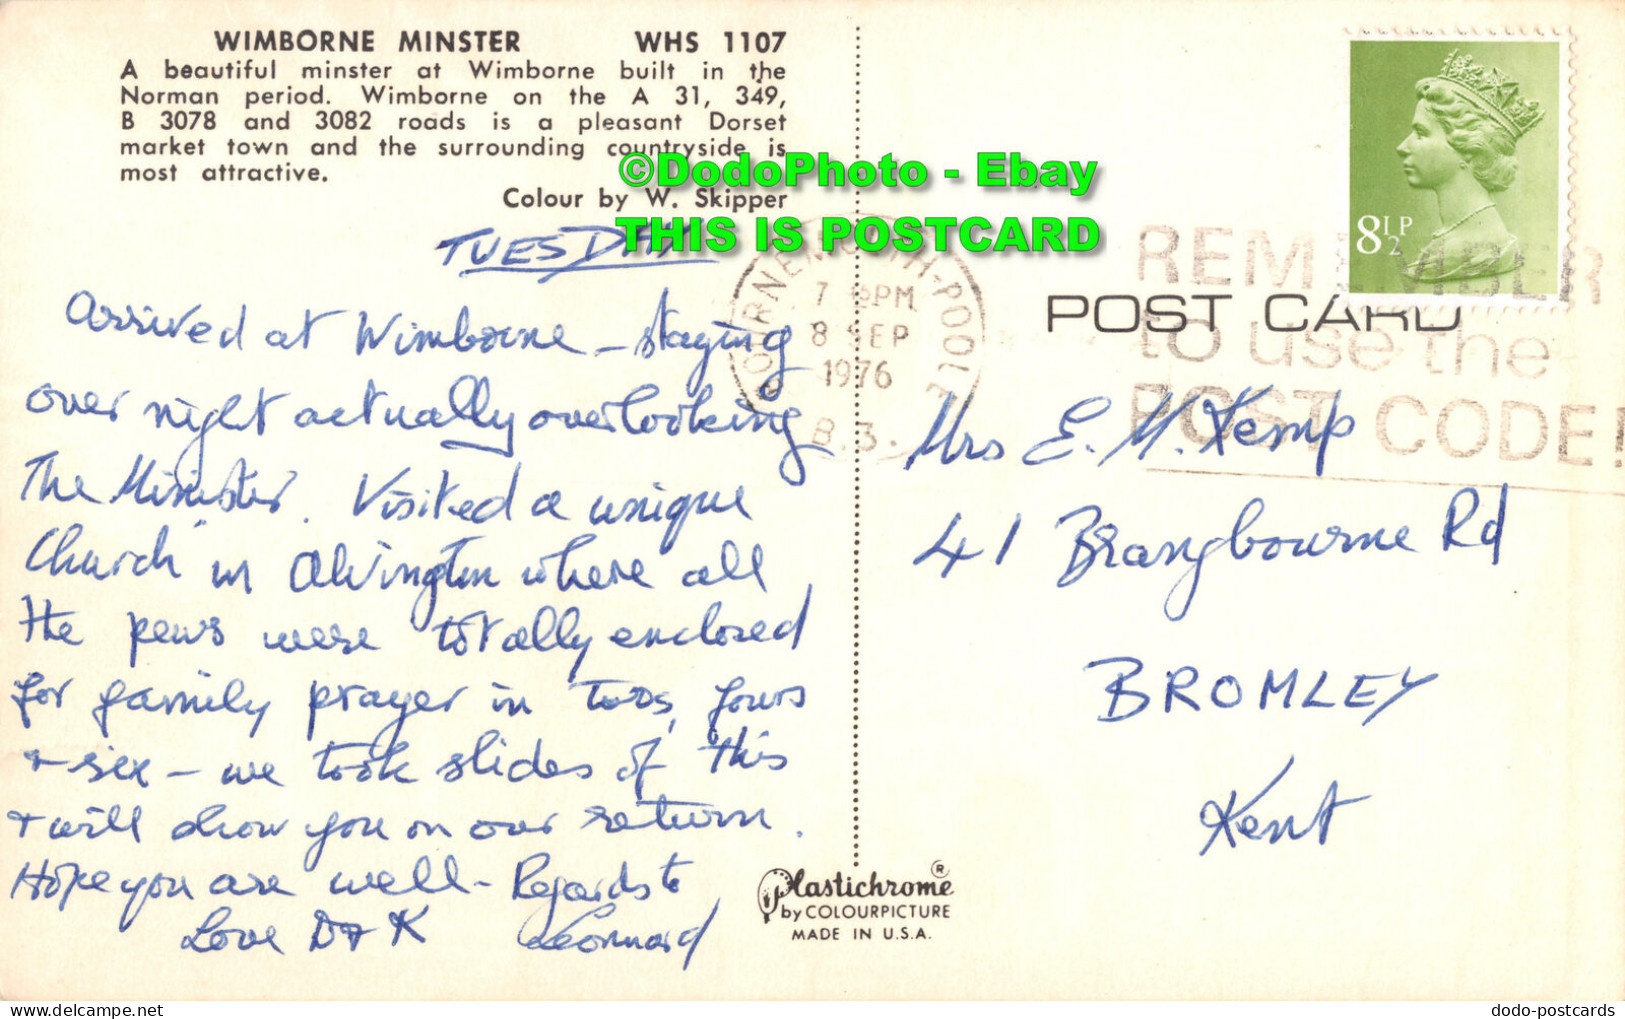 WIMBORNE MINSTER WHS 1107
A beautiful minster at Wimborne built in the
Norman period. Wimborne on the A 31, 349,
B 3078 and 3082 roads is a pleasant Dorset
market town and the surrounding countryside is
most attractive.
Colour by W. Skipper
©DodoPhoto - Ebay
THIS IS POSTCARD
TUESDAY
Arrived at Wimborne - staying
over night actually overlooking
The Minister. Visited a unique
Church in Alvington where all
the pews were totally enclosed
for family prayer in twos, fours
+ six - we took slides of this
+ will show you on our return.
Hope you are well - Regards to
Love D + K Leonnard
8½P
BOURNEMOUTH-POOLE
7 PM
8 SEP
1976
B.3.
REMEMBER
to use the
POST CODE!
POST CARD
Mrs E. M. Kemp
41 Brangbourne Rd
BROMLEY
Kent
Plastichrome ®
by COLOURPICTURE
MADE IN U.S.A.
dodo-postcards